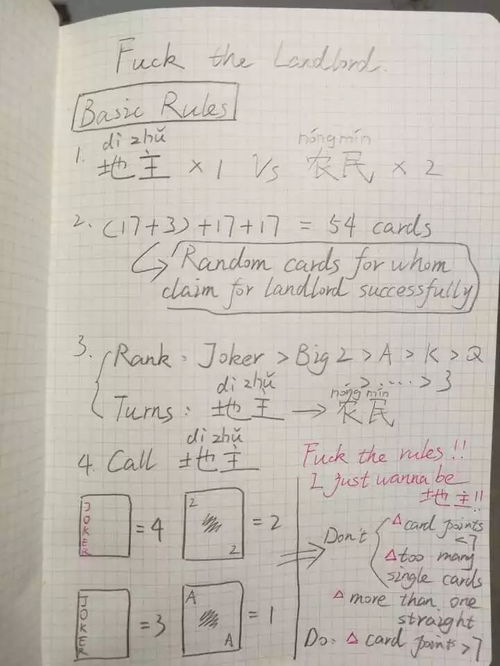 Fuck the Landlord.
Basic Rules
dì zhǔ nóng mín
1. 地主 × 1 Vs 农民 × 2
2. (17+3)+17+17 = 54 cards
Random cards for whom
claim for landlord successfully
3. Rank: Joker > Big 2 > A > K > Q
> ... > 3
dì zhǔ nóng mín
Turns: 地主 → 农民
dì zhǔ
4. Call 地主
JOKER = 4
2 2 = 2
JOKER = 3
A A = 1
Fuck the rules!!
I just wanna be
地主!!
Don't △ card points
< 7
△ too many
single cards
△ more than one
straight
Do: △ card points > 7